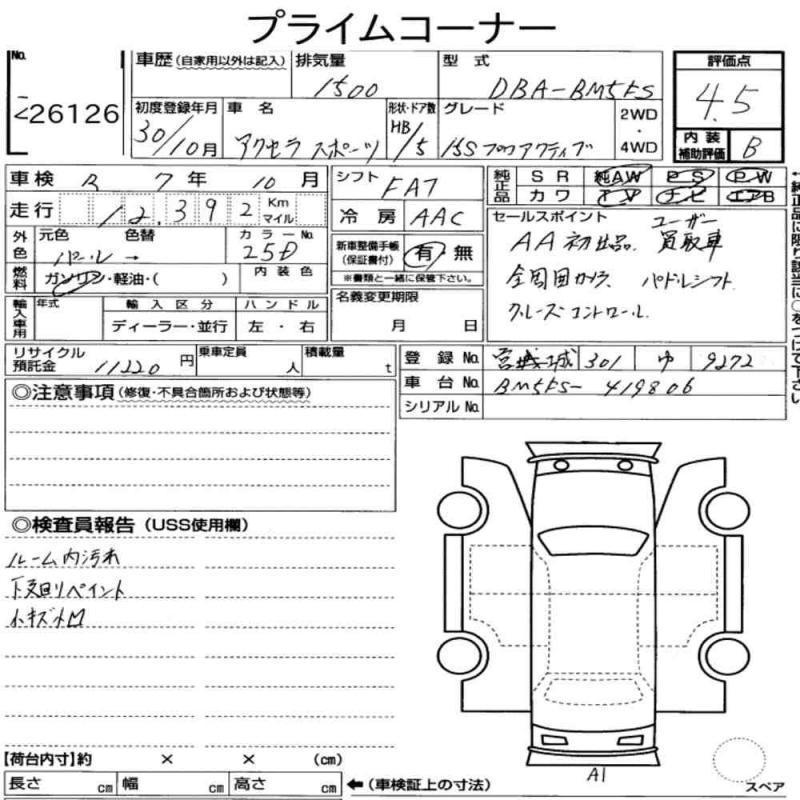 プライムコーナー
No. 26126
車歴 (自家用以外は記入) 排気量 1500 型式 DBA-BM5FS 評価点 4.5
初度登録年月 30/10月 車名 アクセラ スポーツ 形状・ドア数 HB/5 グレード 15S プロアクティブ 2WD・4WD
内装補助評価 B
車検 R 7年 10月 シフト FA7 純正品 SR 純AW PS PW
カワ TV ナビ エアB
走行 12,392 Km マイル 冷房 AAC
外色 元色 パール → 色替 カラーNo. 25D
燃料 ガソリン・軽油・( ) 内装色
新車整備手帳 (保証書付) 有・無
※書類と一緒に保管下さい。
セールスポイント ユーザー
AA初出品 買取車
全周囲カメラ パドルシフト
クルーズコントロール
輸入車用 年式 輸入区分 ハンドル
ディーラー・並行 左・右
名義変更期限 月 日
リサイクル預託金 11220 円 乗車定員 人 積載量 t
登録No. 宮城 301 ゆ 9272
車台No. BM5FS-419806
シリアルNo.
◎注意事項 (修復・不具合箇所および状態等)
◎検査員報告 (USS使用欄)
ルーム内汚れ
下廻りペイント
小キズ小凹
A1
スペア
【荷台内寸】約 × × (cm)
長さ cm 幅 cm 高さ cm ←(車検証上の寸法)